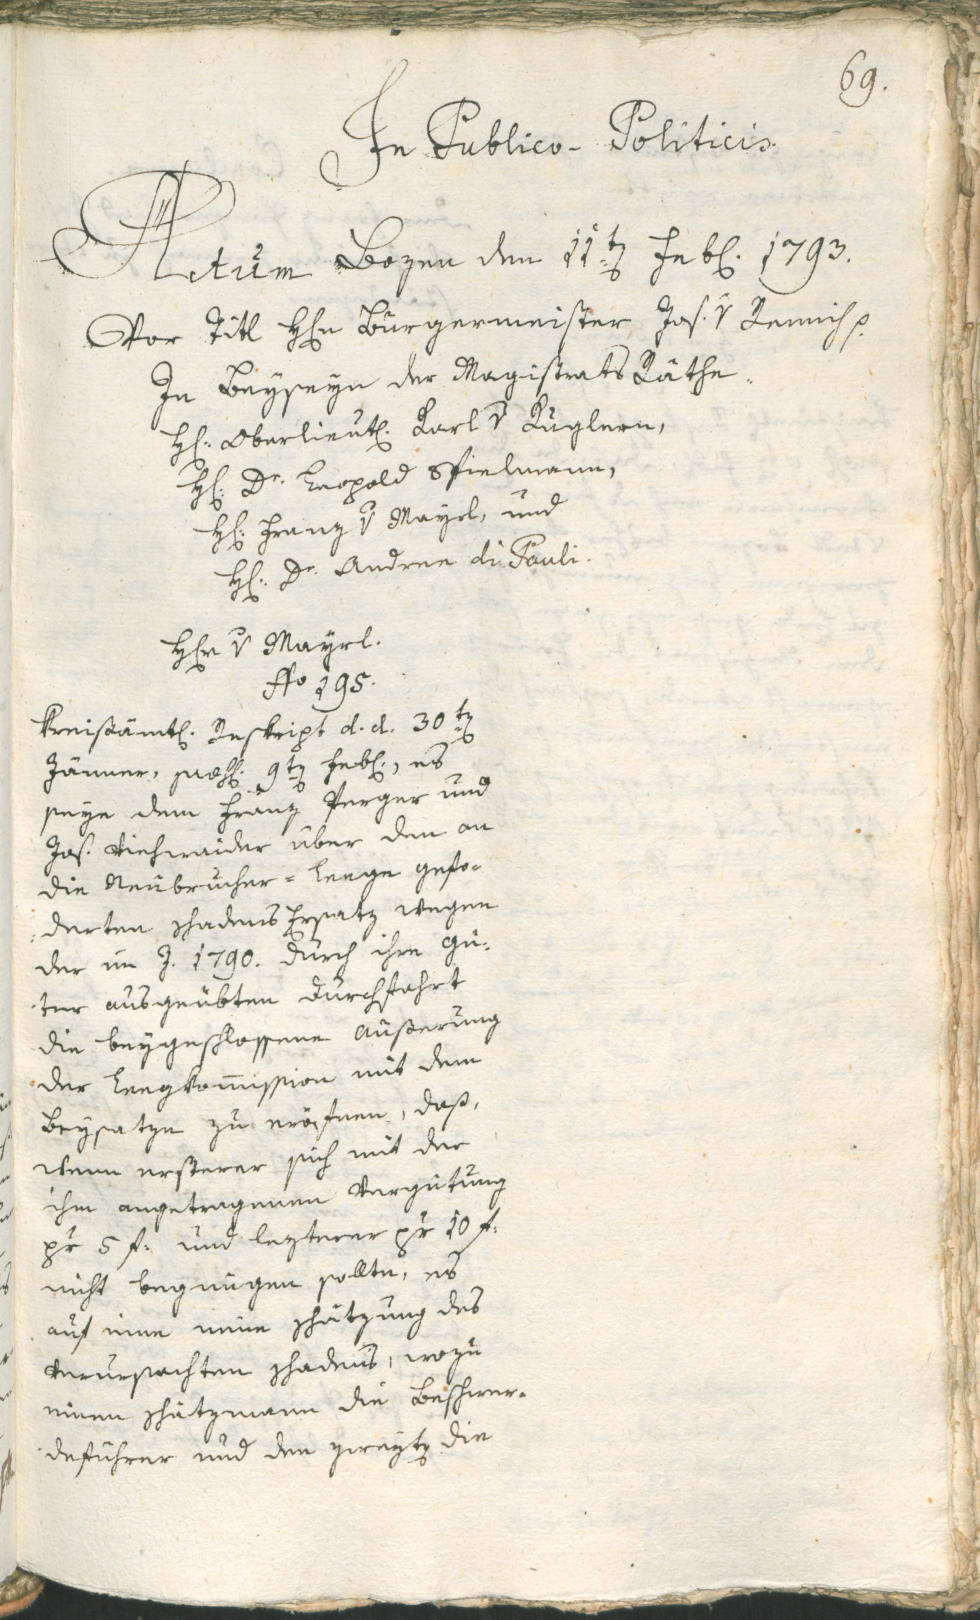 69.
In Publico-Politicis.
Actum Bozen den 11tn Febl. 1793.
Vor Titl Hln Bürgermeister Jos. v Remich p.
In Beyseyn der Magistrats Räthe.
Hl. Oberlieutl. Karl v Kuglern,
Hl. Dr. Leopold Spielmann,
Hl. Franz v Mayrl, und
Hl. Dr. Andree di Pauli.
Hlr v Mayrl.
No 195.
Kreisämtl. Reskript d. d. 30tn
Jänner, 9tn Febl., es
seye dem Franz Perger und
Jos. Viehweider über den an
die Neubrucher-Leege gefo-
derten Schadens Ersatz wegen
der im J. 1790. durch ihre Gü-
ter ausgeübten Durchfahrt
die beygeschlossene Äußerung
der Leegkom̄ission mit dem
Beysatze zu eröfnen, daß,
wenn ersterer sich mit der
ihm angetragenen Vergütung
pr 5 f. und lezterer pr 10 f.
nicht begnügen sollte, es
auf eine neue Schätzung des
verursachten Schadens, wozu
einen Schätzmann die Beschwer-
deführer und den zweytn die